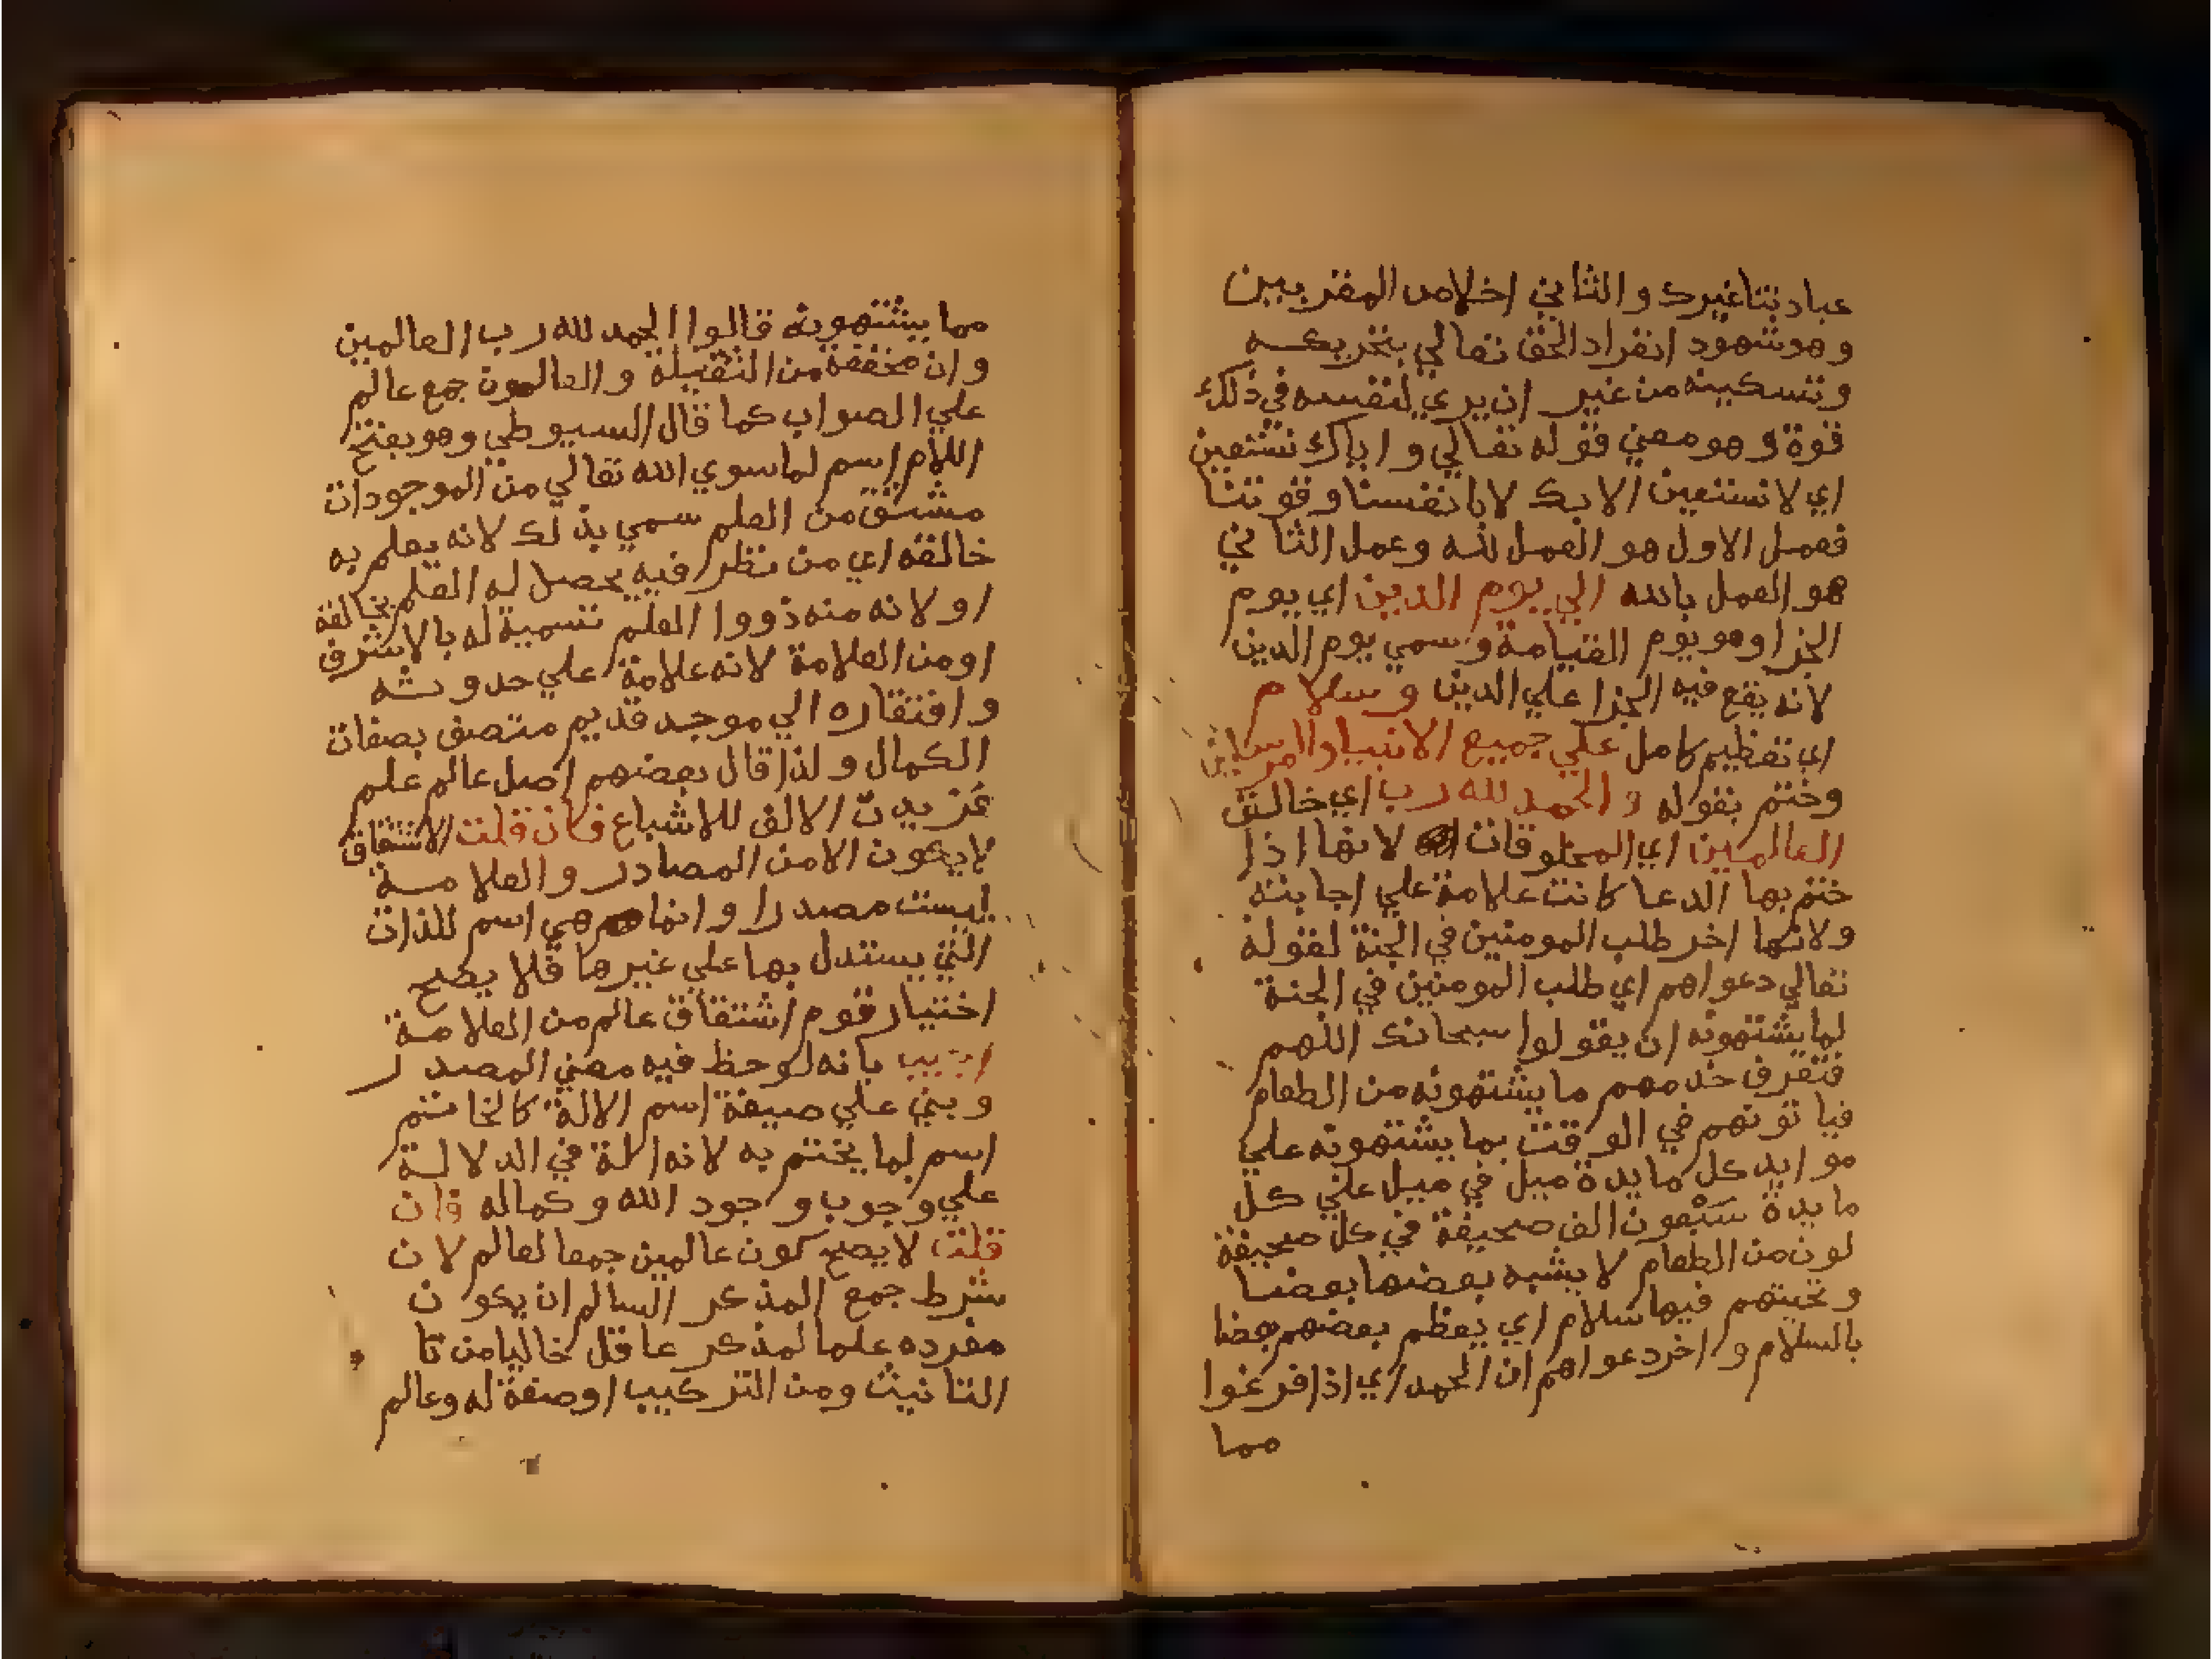 عبادتنا غيرك والثاني اخلاص المقربين
وهو شهود انفراد الحق تعالي بتحريكه
وتسكينه من غير ان يري لنفسه في ذلك
قوة وهو معني قوله تعالي واياك نستعين
اي لا نستعين الا بك لا بانفسنا وقوتنا
فعمل الاول هو العمل لله وعمل الثاني
هو العمل بالله الي يوم الدين اي يوم
الجزا وهو يوم القيامة وسمي يوم الدين
لانه يقع فيه الجزا علي الدين وسلام
اي تعظيم كامل علي جميع الانبيا والمرسلين
وختم بقوله والحمد لله رب اي خالق
العالمين اي المخلوقات لانها اذا
ختم بها الدعا كانت علامة علي اجابته
ولانها اخر طلب المومنين في الجنة لقوله
تعالي دعواهم اي طلب المومنين في الجنة
لما يشتهونه ان يقولوا سبحانك اللهم
فتعرف خدمهم ما يشتهونه من الطعام
فياتونهم في الوقت بما يشتهونه علي
موايد كل مايدة ميل في ميل علي كل
مايدة سبعون الف صحيفة في كل صحيفة
لون من الطعام لا يشبه بعضها بعضا
وتحيتهم فيها سلام اي يعظم بعضهم بعضا
بالسلام واخر دعواهم ان الحمد اي اذا فرغوا
مما
مما يشتهونه قالوا الحمد لله رب العالمين
وان مخففة من الثقيلة والعالمون جمع عالم
علي الصواب كما قال السيوطي وهو بفتح
اللام اسم لما سوي الله تعالي من الموجودات
مشتق من العلم سمي بذلك لانه يعلم به
خالقه اي من نظر فيه يحصل له العلم بخالقه
او لانه منه ذووا العلم تسمية له بالاشرف
او من العلامة لانه علامة علي حدوثه
وافتقاره الي موجد قديم متصف بصفات
الكمال ولذا قال بعضهم اصل عالم علم
فزيدت الالف للاشباع فان قلت الاشتقاق
لا يكون الا من المصادر والعلامة
ليست مصدرا وانما هي اسم للذات
التي يستدل بها علي غيرها فلا يصح
اختيار قوم اشتقاق عالم من العلامة
اجيب بانه لوحظ فيه معني المصدر
وبني علي صيغة اسم الالة كالخاتم
اسم لما يختم به لانه الة في الدلالة
علي وجوب وجود الله وكماله فان
قلت لا يصح كون عالمين جمعا لعالم لان
شرط جمع المذكر السالم ان يكون
مفرده علما لمذكر عاقل خاليا من تا
التانيث ومن التركيب او صفة له وعالم